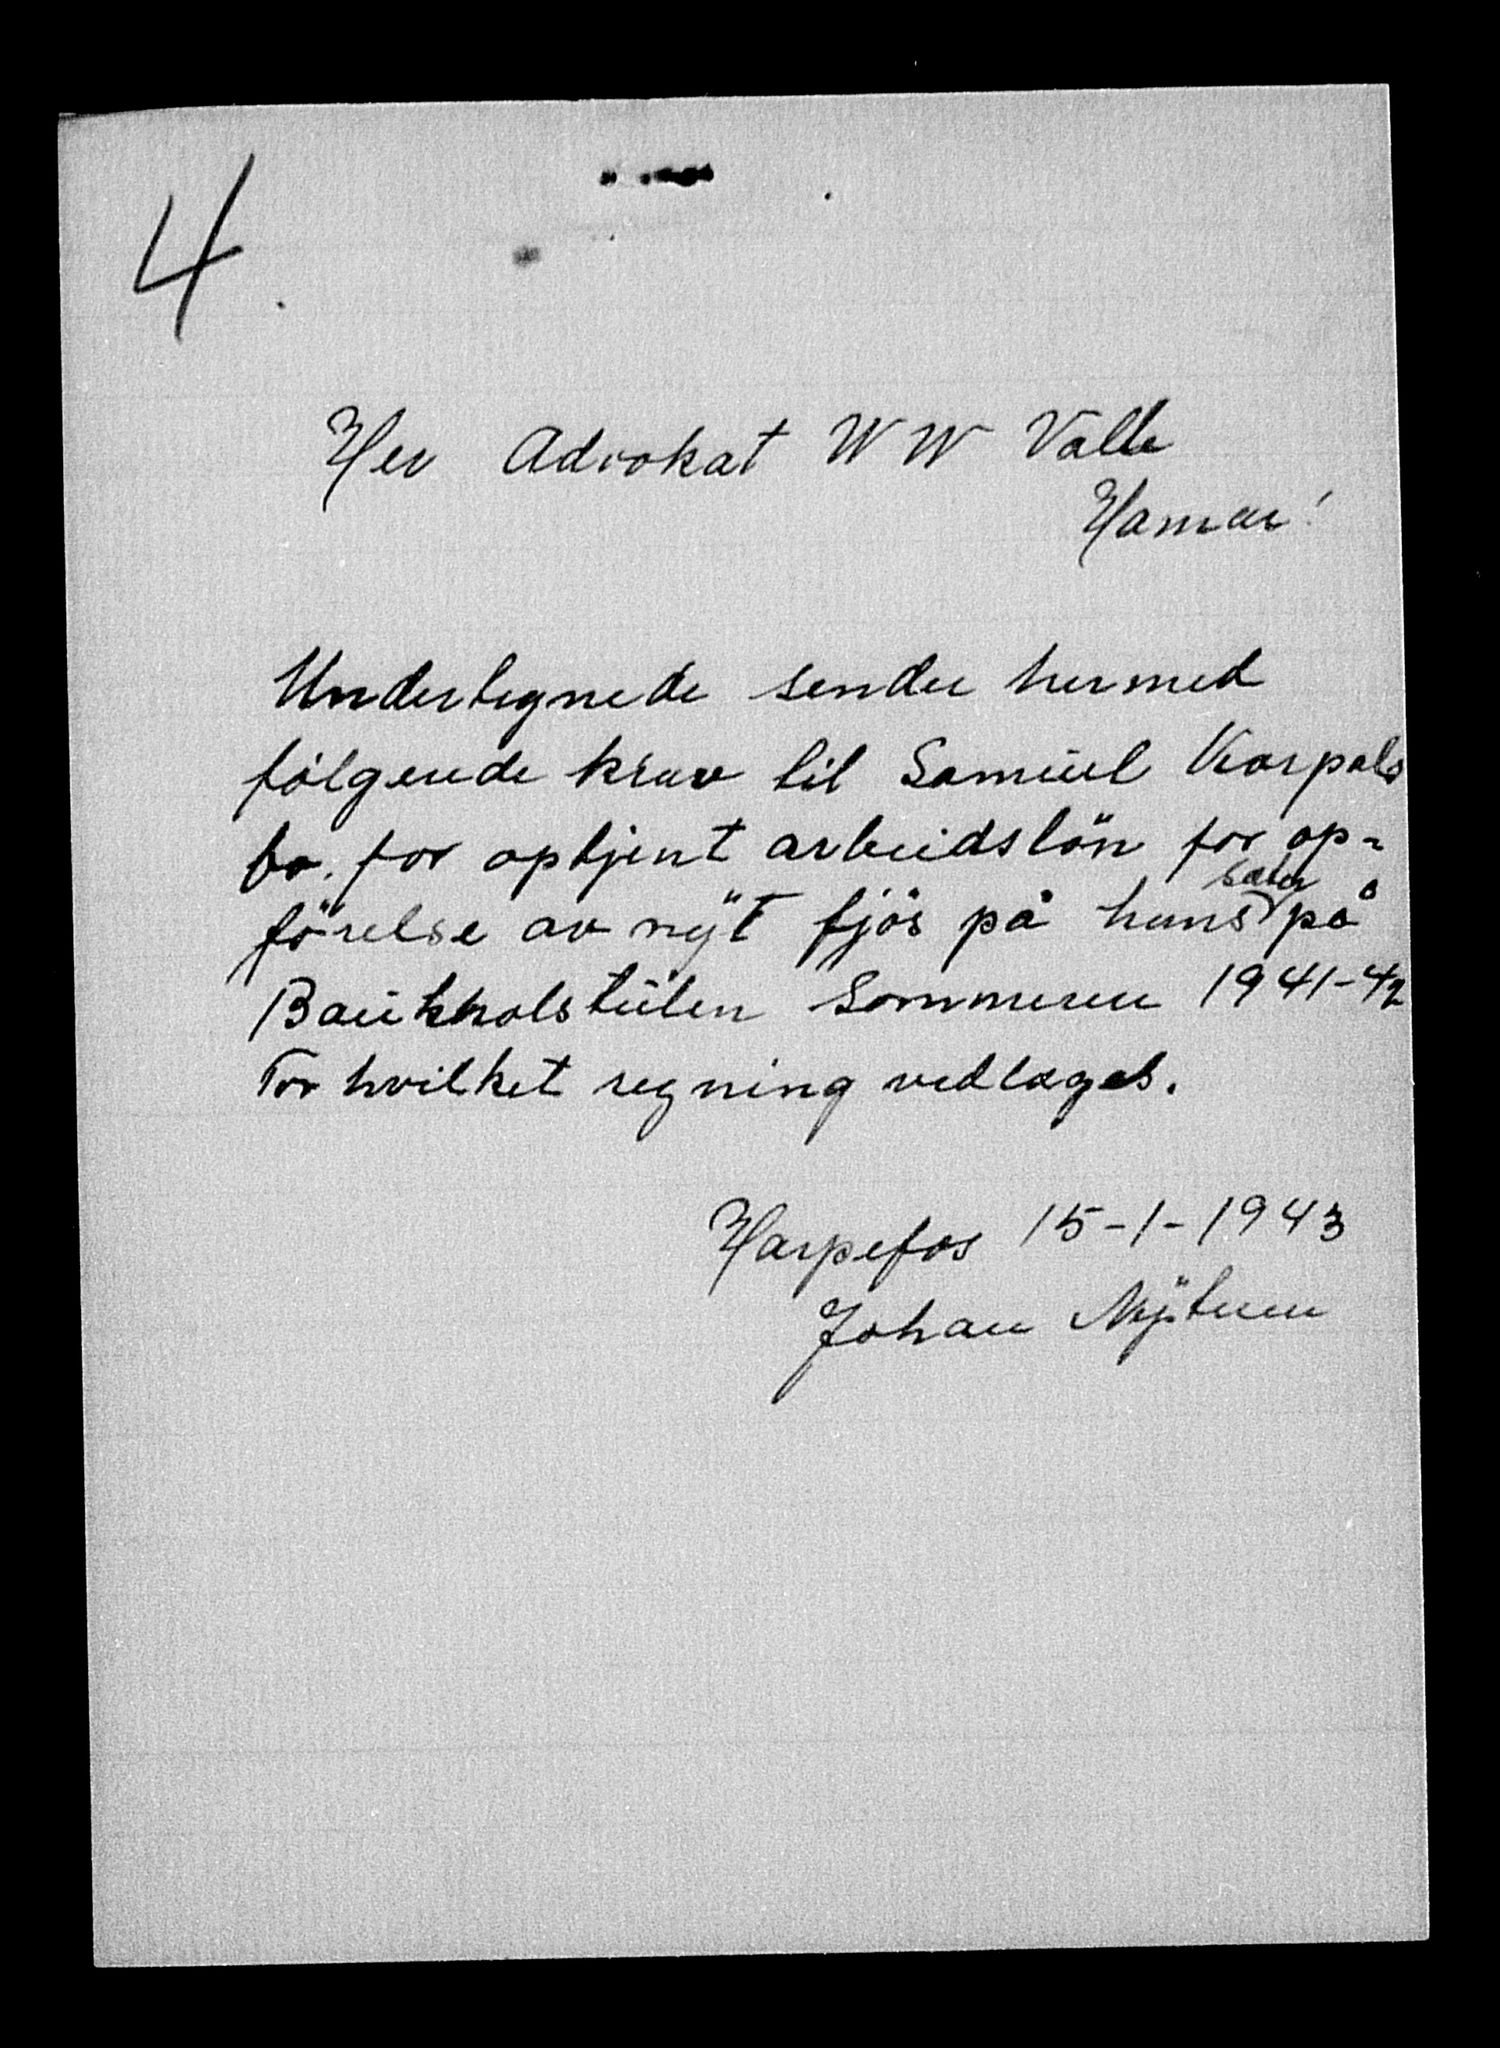 4.
Her Advokat W W Valle
Hamar!
Undertegnede sender hermed
følgende krav til Samuel Karpals
bo. for optjent arbeidslön for op-
förelse av nyt fjös på hans sæter på
Baukholstulen Sommeren 1941-42
For hvilket regning vedlægges.
Harpefos 15-1-1943
Johan Nytuen